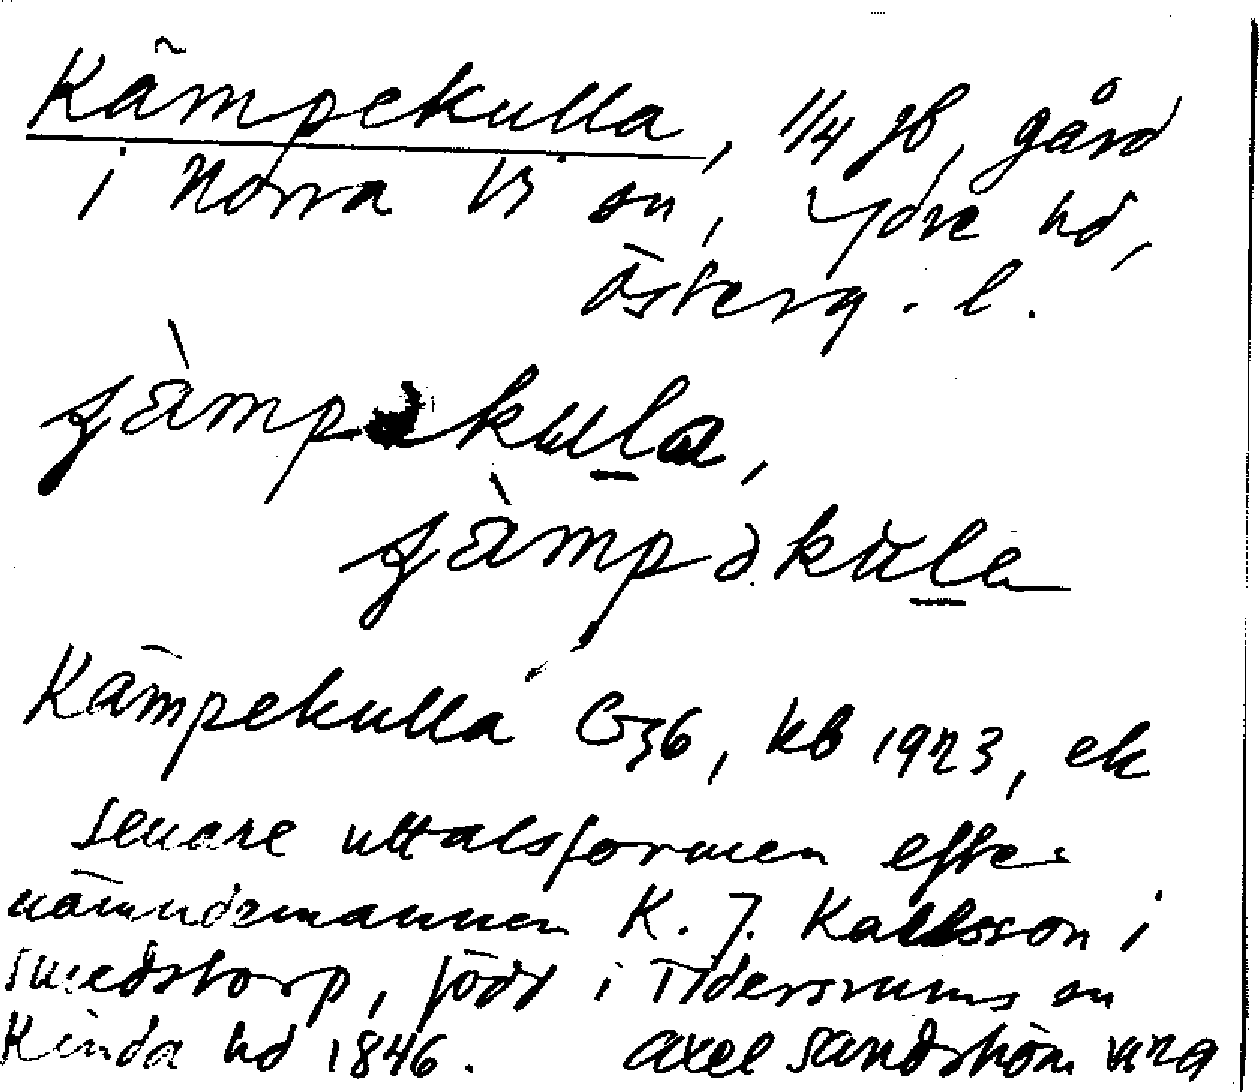 Kämpekulla, 1/4 jb, gård
i Norra Vi sn, Ydre hd,
Österg. l.
jàmpəkula,
jàmpəkula
Kämpekulla G36, kb 1923, ek
senare uttalsformen efter
nämndemannen K. J. Karlsson i
Smedstorp, född i Tidersrums sn
Kinda hd 1846. Axel Sandström